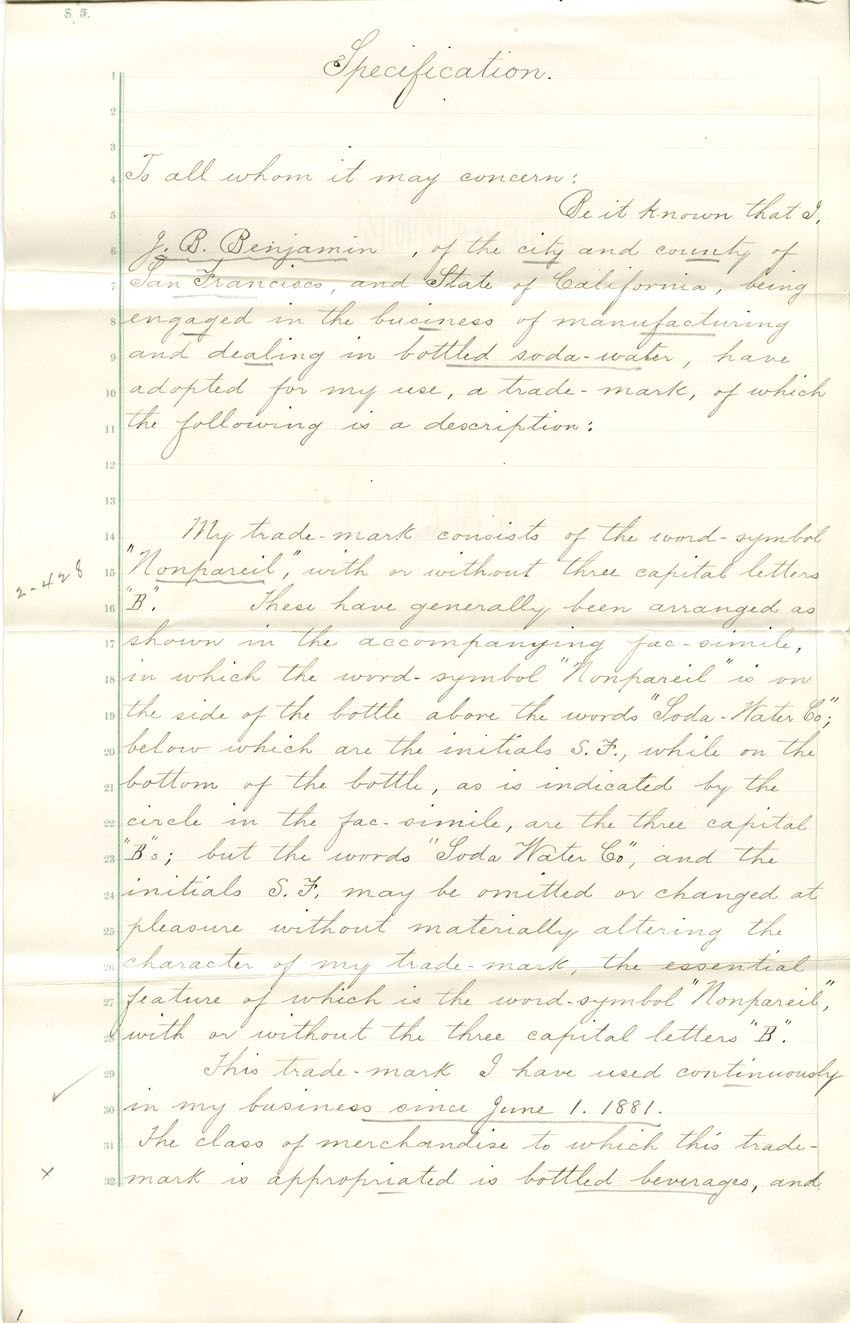 S. F.
Specification.
1
2
3
4 To all whom it may concern:
5 Be it known that I,
6 J. B. Benjamin , of the city and county of
7 San Francisco, and State of California, being
8 engaged in the business of manufacturing
9 and dealing in bottled soda-water, have
10 adopted for my use, a trade-mark, of which
11 the following is a description:
12
13
14 My trade-mark consists of the word-symbol
2-428
15 "Nonpareil", with or without three capital letters
16 "B". These have generally been arranged as
17 shown in the accompanying fac-simile,
18 in which the word-symbol "Nonpareil" is on
19 the side of the bottle above the words "Soda-Water Co";
20 below which are the initials S.F., while on the
21 bottom of the bottle, as is indicated by the
22 circle in the fac-simile, are the three capital
23 "B"s; but the words "Soda Water Co", and the
24 initials S.F. may be omitted or changed at
25 pleasure without materially altering the
26 character of my trade-mark, the essential
27 feature of which is the word-symbol "Nonpareil",
28 with or without the three capital letters "B".
29 This trade-mark I have used continuously
30 in my business since June 1. 1881.
31 The class of merchandise to which this trade-
x
32 mark is appropriated is bottled beverages, and
1